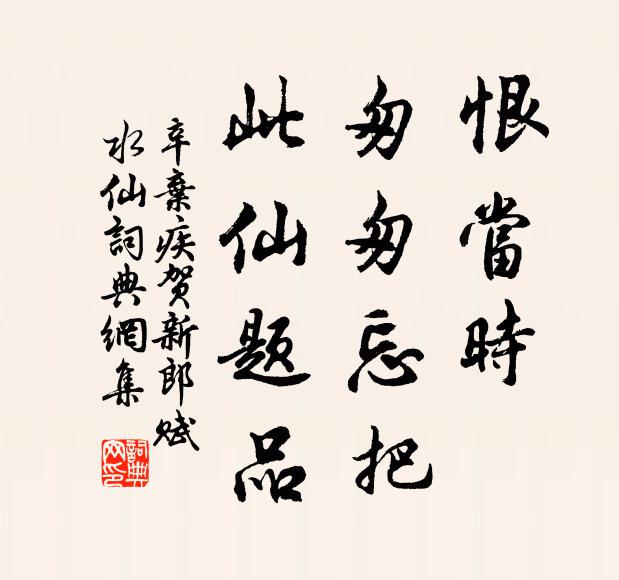 恨當時
匆匆忘把
此仙題品
辛棄疾賀新郎賦
水仙詞典網集
詞典
网印